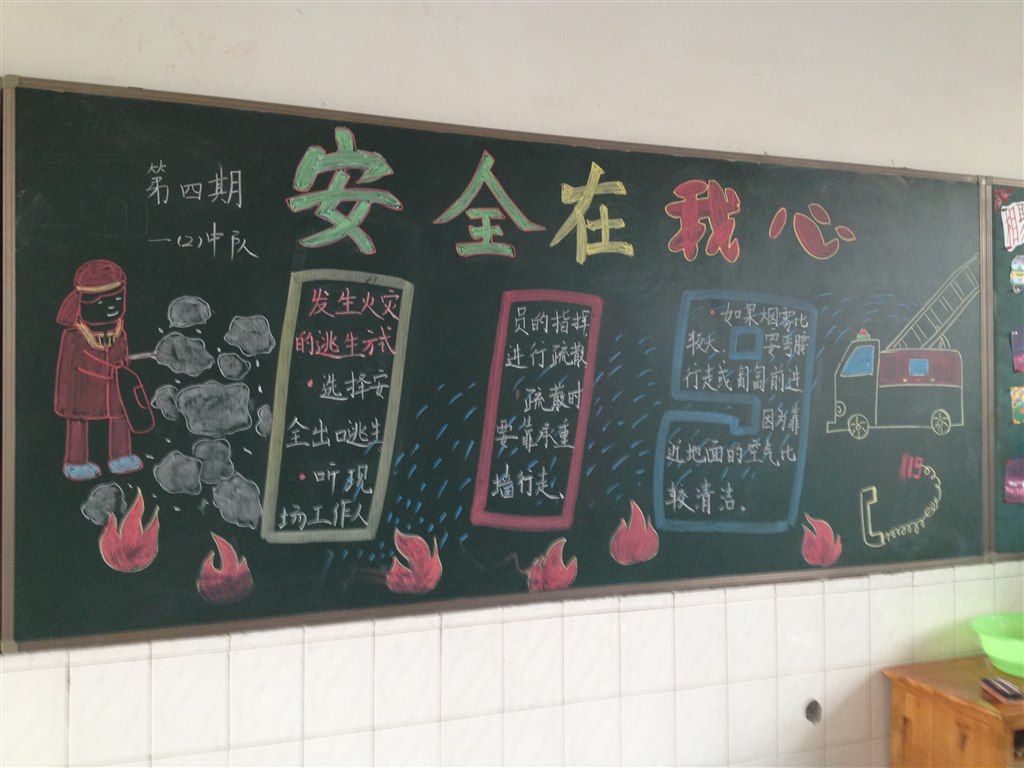 第四期
一(2)中队
安全在我心
发生火灾
的逃生方式
·选择安
全出口逃生
·听现
场工作人
员的指挥
进行疏散
疏散时
要靠承重
墙行走、
·如果烟雾比
较大、要弯腰
行走或匍匐前进
因为靠
近地面的空气比
较清洁、
119